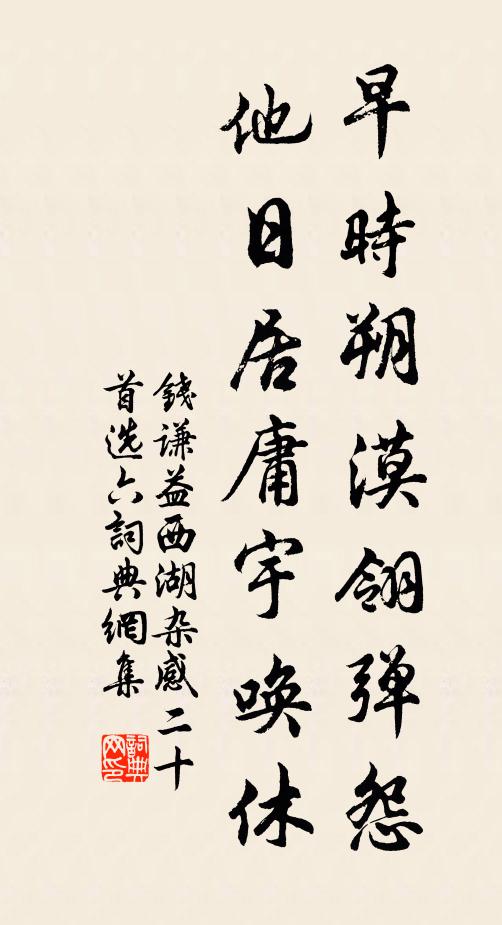 早時朔漠翎弹怨
他日居庸宇喚休
錢谦益西湖杂感二十
首选六詞典網集
詞典網印